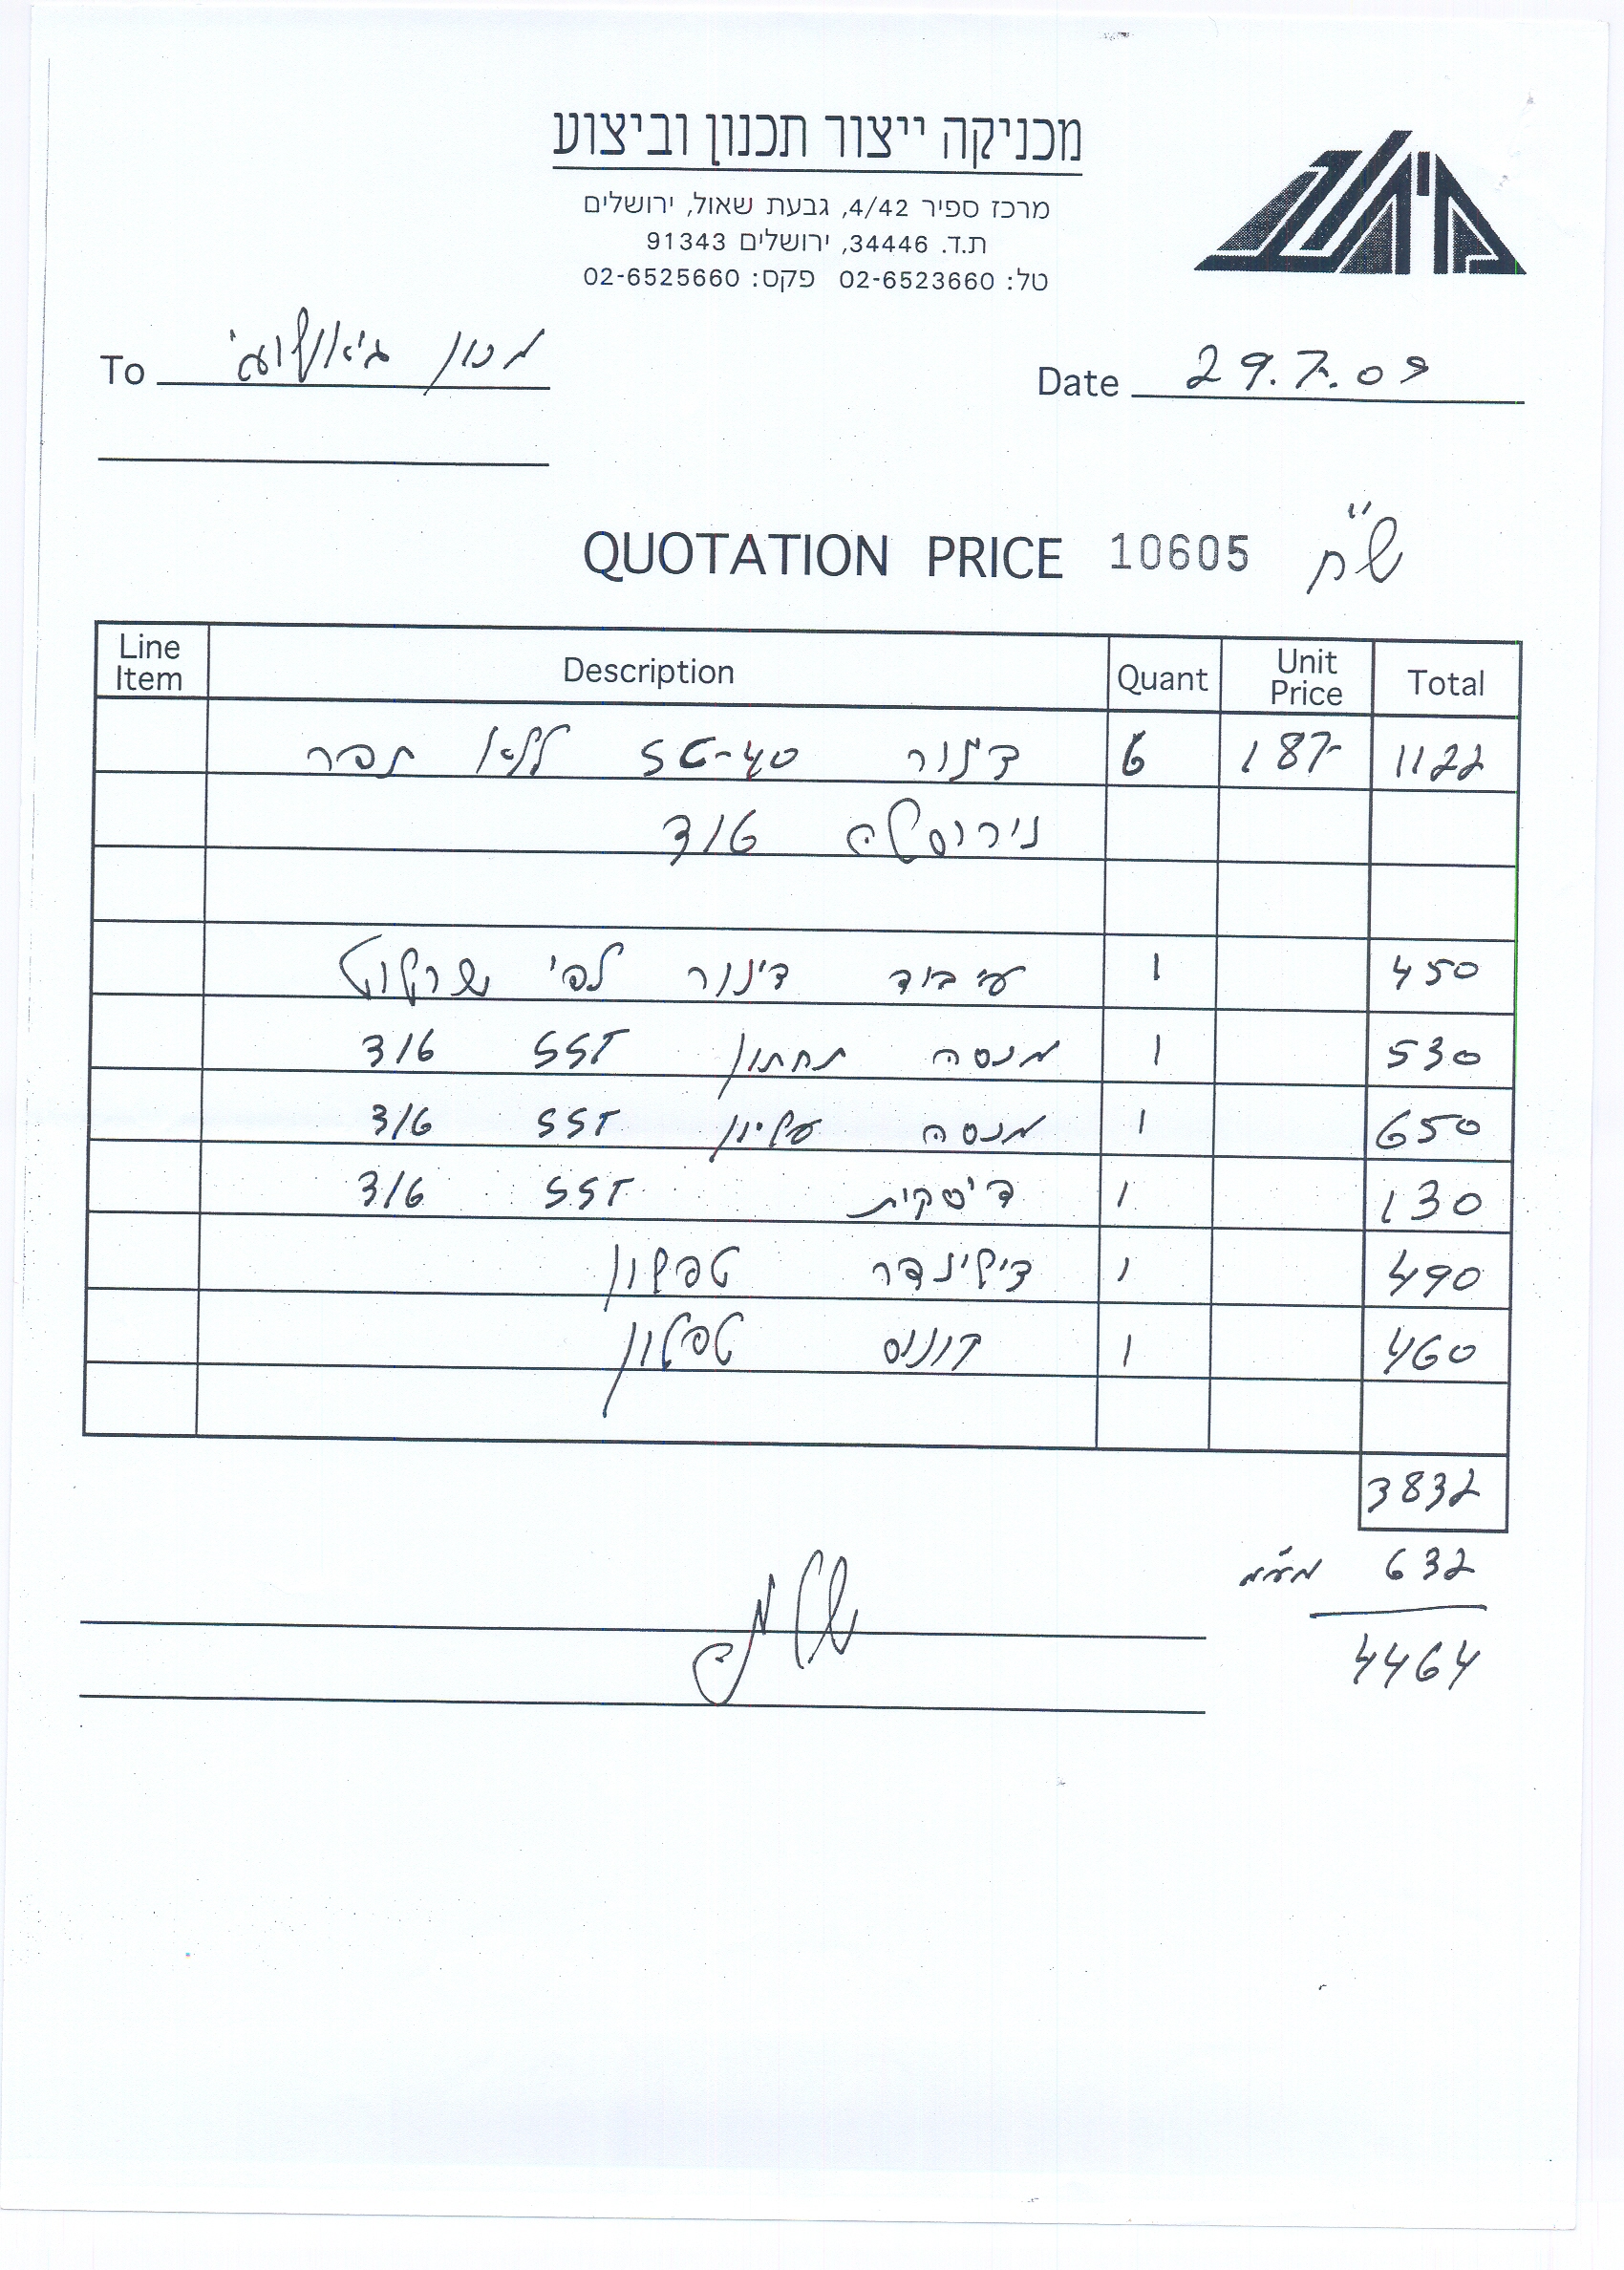 מכניקה ייצור תכנון וביצוע
מרכז ספיר 4/42, גבעת שאול, ירושלים
ת.ד. 34446, ירושלים 91343
טל: 02-6523660 פקס: 02-6525660
To מכון
Date 29.7.09
QUOTATION PRICE 10605 ש"ח
Line Item Description Quant Unit Price Total
צינור SC-40 ללא תפר 6 187- 1122
נירוסטה 316
עיבוד צינור לפי 1 450
מכסה תחתון SST 316 1 530
מכסה עליון SST 316 1 650
דיסקית SST 316 1 130
צילינדר טפלון 1 490
קונוס טפלון 1 460
3832
מע"מ 632
4464